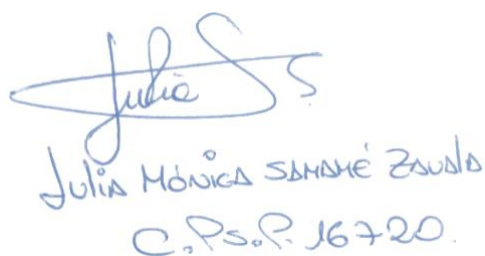 Julia S S
Julia Mónica SAMAMÉ ZAVALA
C.Ps.P. 16720.